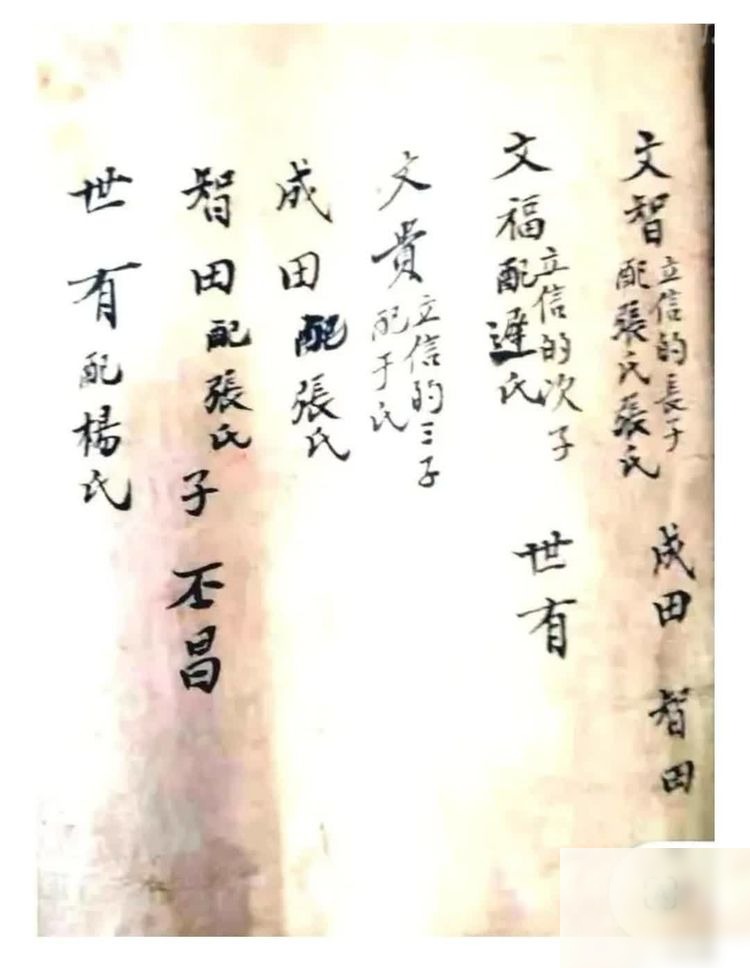 文智 立信的長子 配張氏張氏 成田 智田
文福 立信的次子 配遲氏 世有
文貴 立信的三子 配于氏
成田配張氏
智田配張氏子丕昌
世有配楊氏